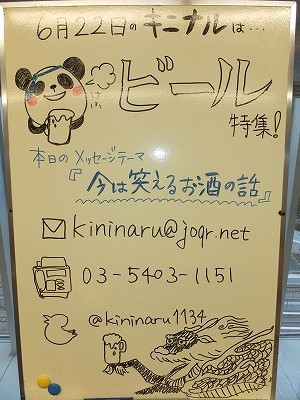 6月22日のキニナルは…
ビール
特集!
本日のメッセージテーマ
『今は笑えるお酒の話』
kininaru@joqr.net
03-5403-1151
@kininaru1134